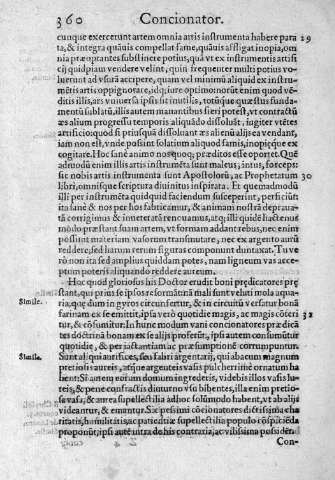 360 Concionator.
cunque exercerunt artem omnia artis instrumenta habere para 29
ta, & integra quāuis compellat fame, quāuis affligat inopia, om
nia præoptantes subſtinere potius, quā vt ex inſtrumentis artifi
cij quidpiam vendere velint, quin frequenter multi potius vo
luerunt ad vſurā accipere, quam vel minimū aliquid ex inſtru-
mētis artis oppignorare, idq; iure optimo norūt enim quod vē-
ditis illis, ars vniuerſa ipſis ſit inutilis, totūque quæſtus funda-
mentū ſublatū, illis autem manantibus fieri poteſt, vt contractū
æs alium progreſſu temporis aliquādo diſſoluāt, iugiter vtētes
artificio: quod ſi priuſquā diſſoluant æs alienū alij ea vendant,
iam non eſt, vnde poſsint ſolatium aliquod famis, inopiæque ex
cogitare. Hoc ſanè animo nos quoq; præditos eſſe oportet. Quē
admodū enim illis artis inſtrumēta ſunt malleus, intus, forceps:
ſic nobis artis inſtrumenta ſunt Apoſtolorū, ac Prophetatum 30
libri, omniſque ſcriptura diuinitus inſpirata. Et quemadmodū
illi per inſtrumēta quidquid faciendum ſusceperint, perficiūt
ita ſanè & nos per hos fabricamur, & animam noſtrā deprauа-
tā corrigimus & inueteratā renouamus, atq; illi quidē hactenus
modo præſtant ſuam artem, vt formam addant rebus, nec enim
poſſint materiam vaſorum tranſmutare, nec ex argento aurū
reddere, ſed harum rerum figuras componunt duntaxat. Tu ve
rò non ita ſed amplius quiddam potes, nam ligneum vas ac-
ceptum poteris aliquando reddere aureum.
Hoc quod glorioſus his Doctor erudit boni prędicatores præ 31
ſtant, qui prius ſe ipſos reformāt mali ſunt veluti mola aqua-
Simile. ria, quę dum in gyros circunfertur, & in circuitū verſatur bonā
farinam ex ſe emittit, ipſa verò quotidie magis, ac magis cōteri
tur, & cōſumitur. In hunc modum vani concionatores prædicā 32
tes doctrinā bonam ex ſe alijs proferūt, ipſi autem conſumūtur
quotidie, & per iactantiam ac præſumptionē corrumpuntur.
Simile. Sunt alij qui aurifices, ſeu fabri argentarij, qui abacum magnum
pretioſis aureis, atque argenteis vaſis pulcherrimè ornatum ha
bent: Si autem eorum domum ingrederis, videbis illos vaſis lu-
teis, & penè confractis diuturno vſu bibentes, illa enim pretio-
ſa vaſa, & aurea ſupellectilia ad hoc ſolūmodo habent, vt ab alijs
videantur, & emantur. Sic peſsimi cōcionatores dictiſsima cha
ritatis, humilitatis, ac patientiæ ſupellectilia populo cōſpiciēda
proponūt, ipſi autē intra do his contraria, ac viliſsima poſsidēt.
Con-